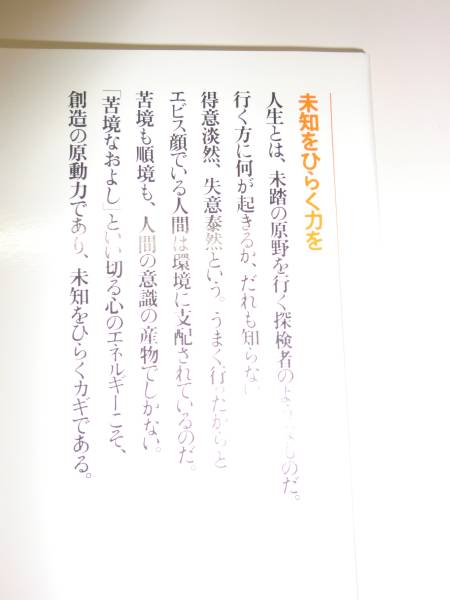 未知をひらく力を
人生とは、未踏の原野を行く探検者のようなものだ。
行く方に何が起きるか、だれも知らない
得意淡然、失意泰然という。うまく行ったからと
エビス顔でいる人間は環境に支配されているのだ。
苦境も順境も、人間の意識の産物でしかない。
「苦境なおよし」といい切る心のエネルギーこそ、
創造の原動力であり、未知をひらくカギである。